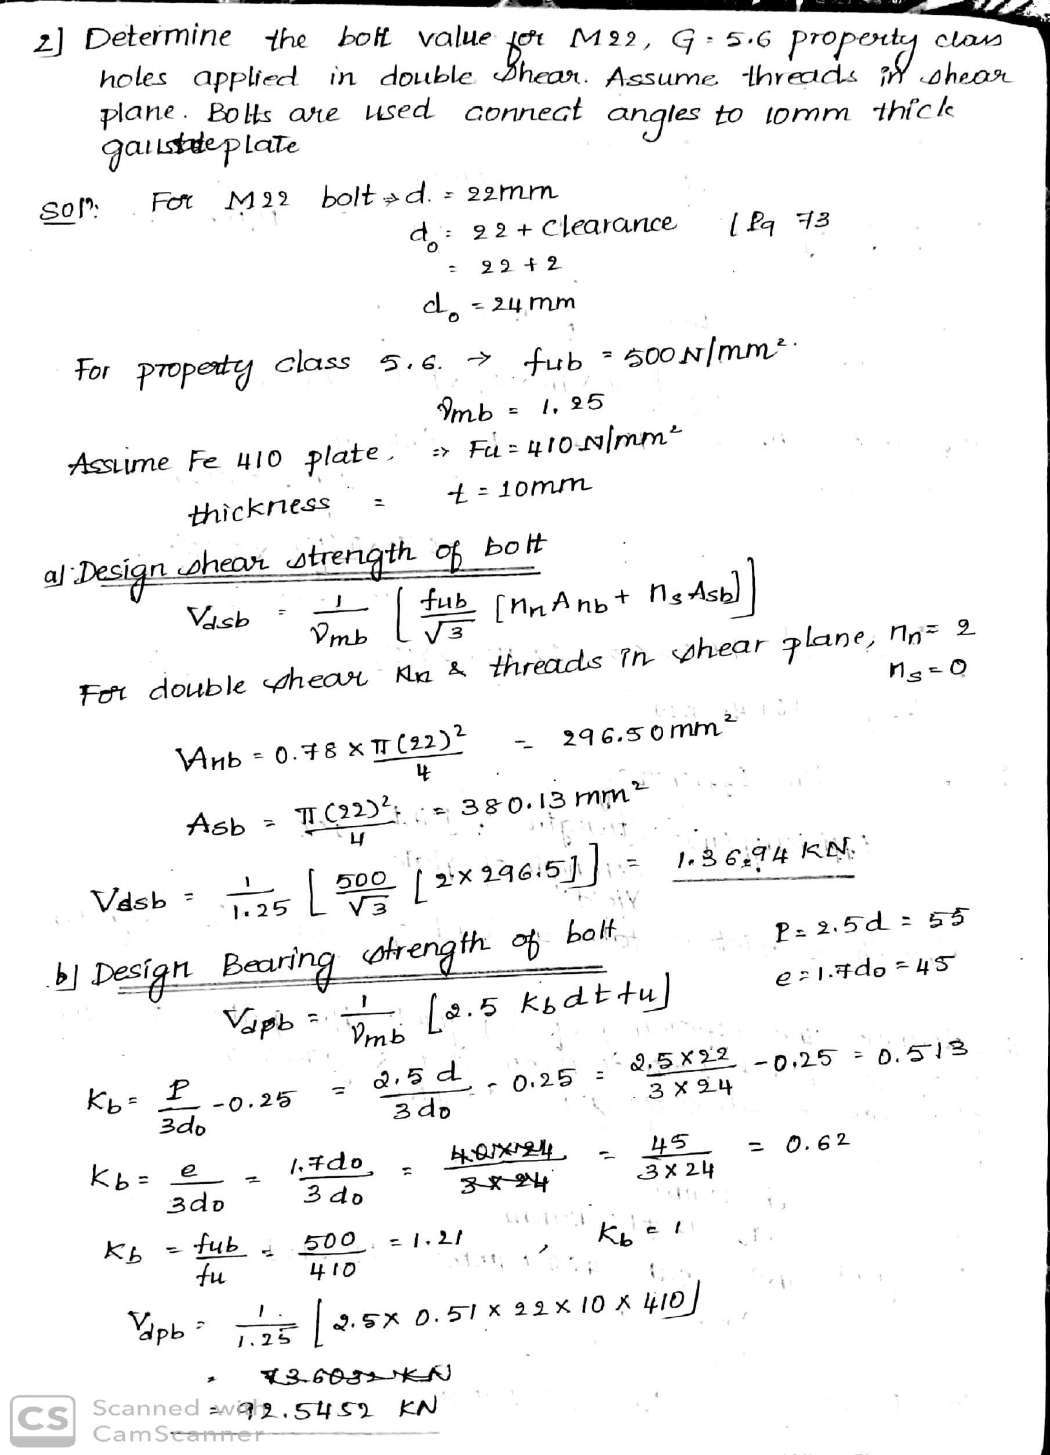 2] Determine the bolt value for M22, G = 5.6 property class
holes applied in double shear. Assume threads in shear
plane. Bolts are used connect angles to 10mm thick
plate
Solⁿ: For M22 bolt → d. = 22mm
d₀ = 22 + Clearance | Pg 73
= 22 + 2
d₀ = 24 mm
For property class 5.6. → fub = 500 N/mm².
γmb = 1.25
Assume Fe 410 plate. ⇒ Fu = 410 N/mm²
thickness = t = 10mm
a] Design shear strength of bolt
Vdsb = 1/γmb [ fub/√3 [nn Anb + ns Asb]]
For double shear & threads in shear plane, nn = 2
ns = 0
Anb = 0.78 × π(22)²/4 = 296.50mm²
Asb = π(22)²/4 = 380.13 mm²
Vdsb = 1/1.25 [ 500/√3 [2 × 296.5]] = 136.94 KN.
b] Design Bearing strength of bolt
P = 2.5d = 55
e = 1.7do = 45
Vdpb = 1/γmb [2.5 Kb d t fu]
Kb = P/3do - 0.25 = 2.5 d/3do - 0.25 = 2.5×22/3×24 - 0.25 = 0.513
Kb = e/3do = 1.7do/3do = 40×24/3×24 = 45/3×24 = 0.62
Kb = fub/fu = 500/410 = 1.21 , Kb = 1
Vdpb = 1/1.25 [2.5× 0.51 × 22 × 10 × 410]
= 73.6032 KN
= 92.5452 KN
CS Scanned with
CamScanner